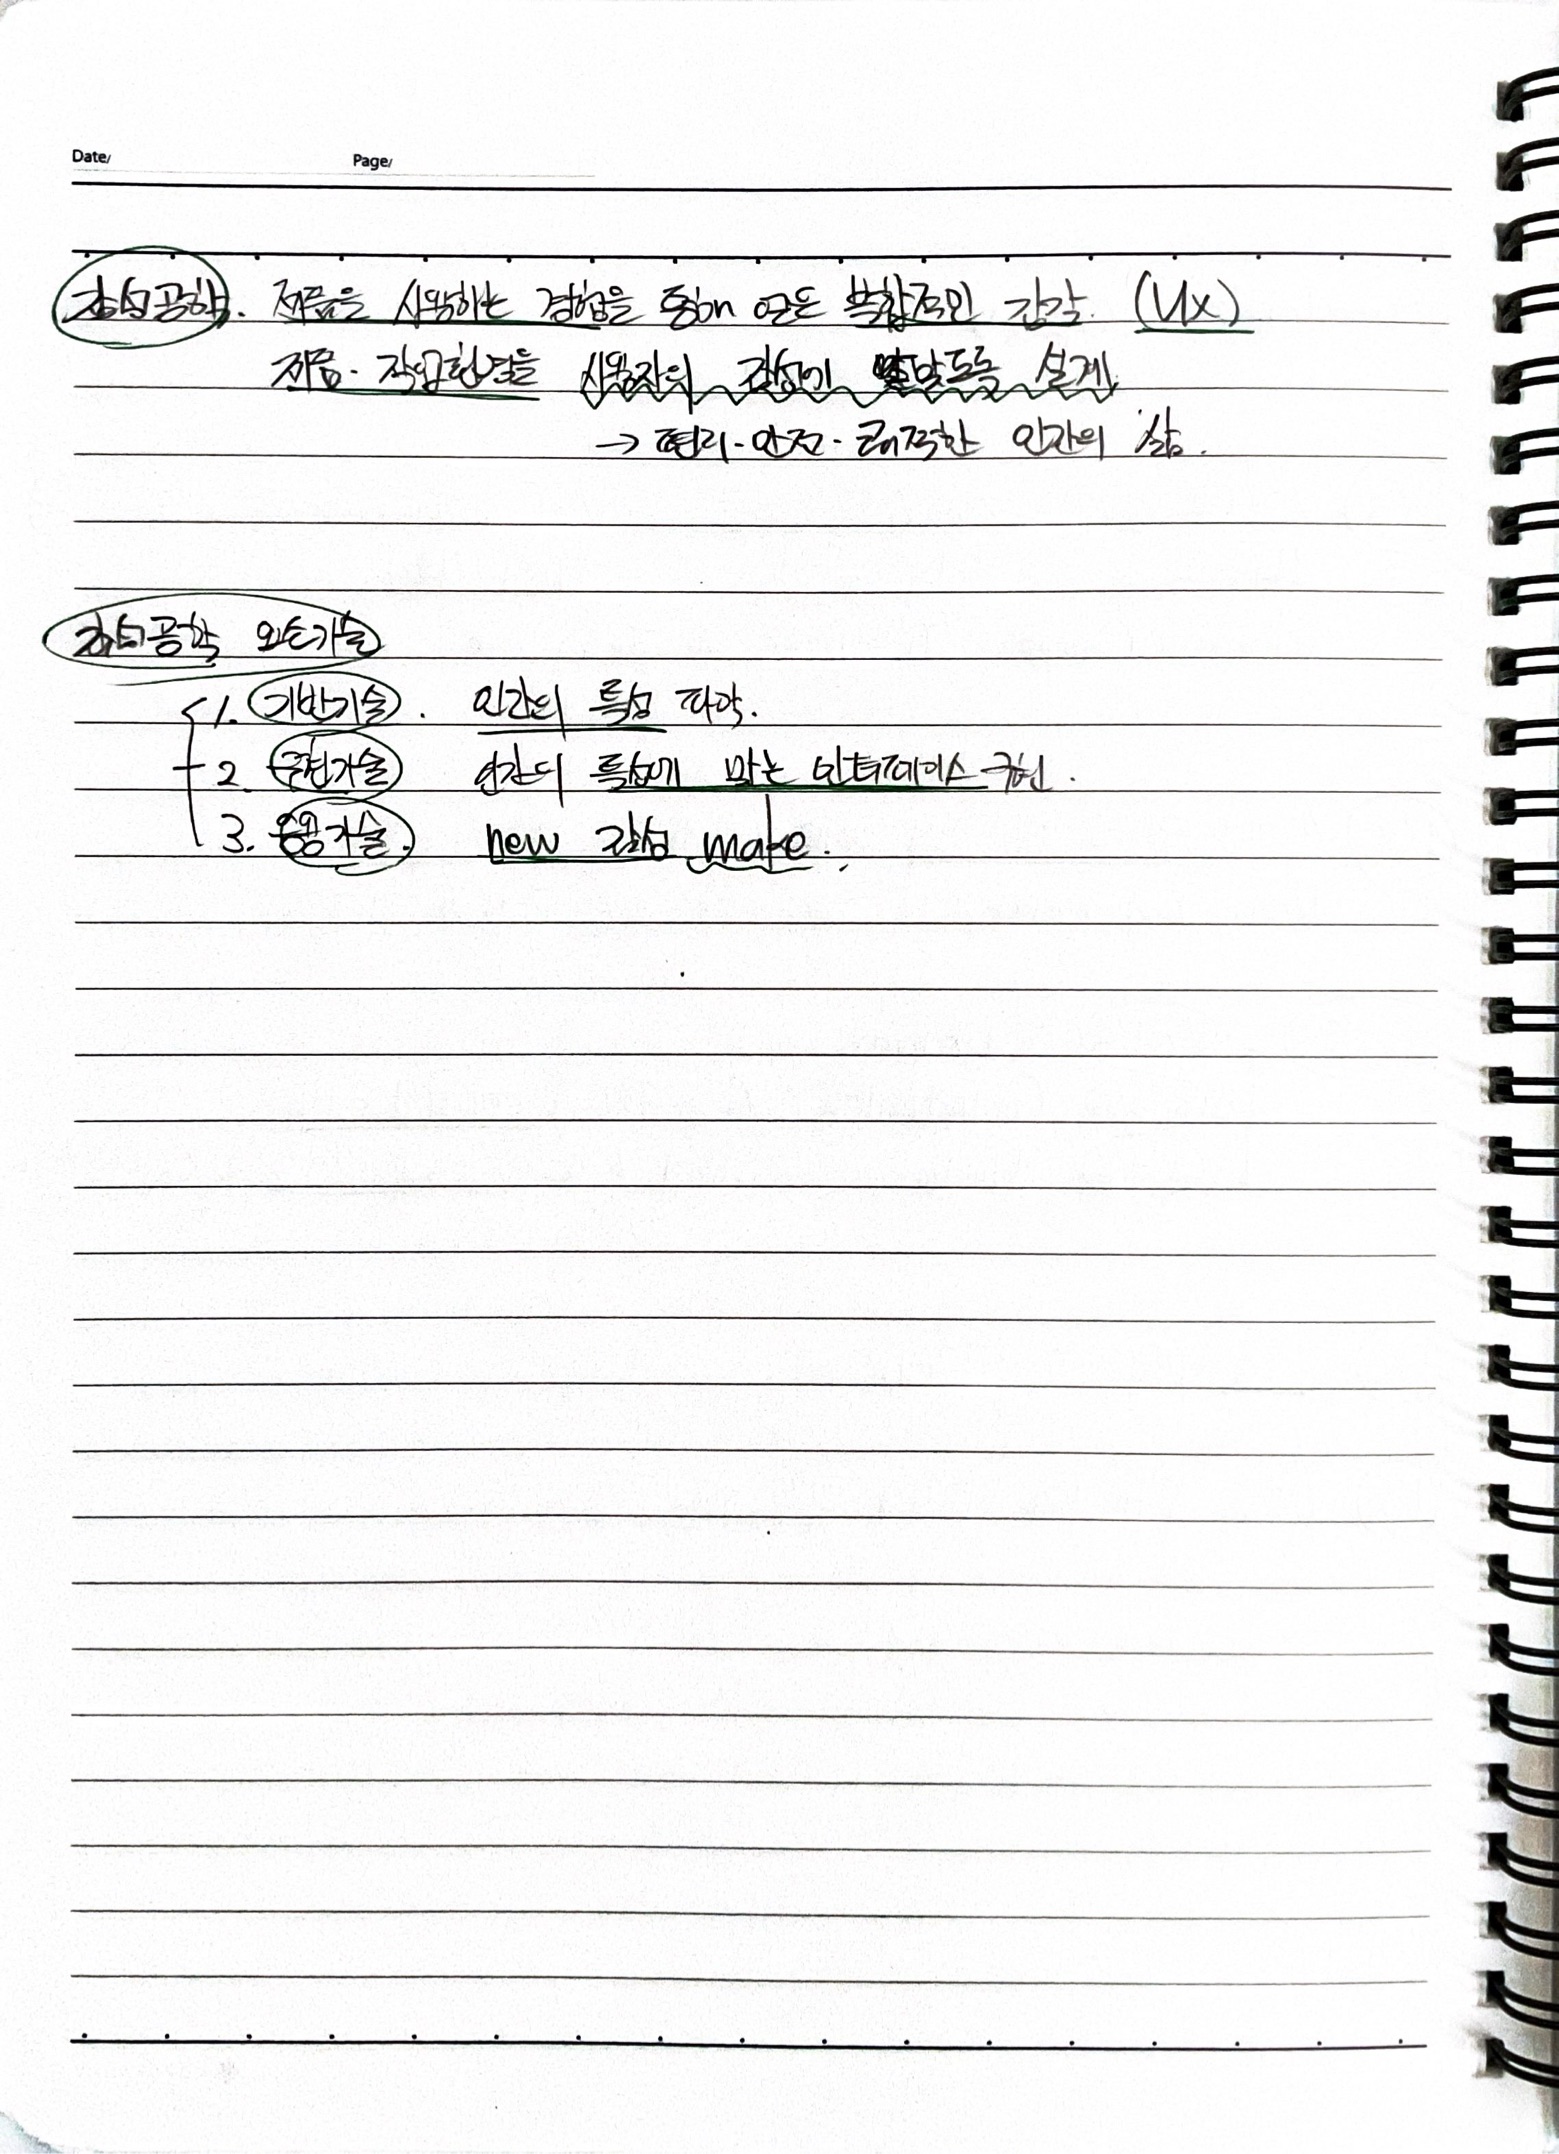 Date/ Page/
감성공학. 제품을 사용하는 경험을 통해 얻은 복합적인 감각. (UX)
제품·작업환경을 사용자의 감성에 알맞도록 설계
→ 편리·안전·쾌적한 인간의 삶.
감성공학 요소기술
1. 기반기술. 인간의 특성 파악.
2. 구현기술 인간의 특성에 맞는 인터페이스 구현.
3. 응용기술. new 감성 make.